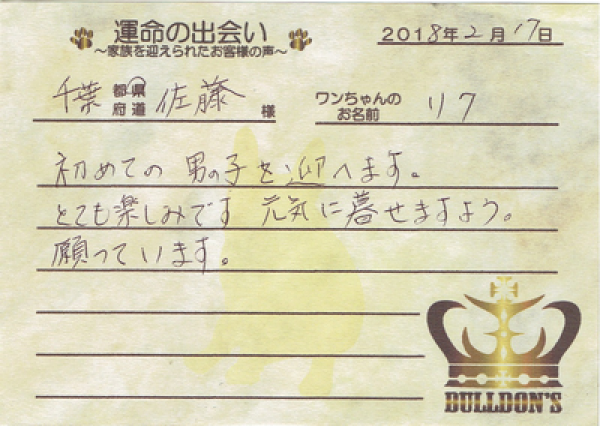 運命の出会い
～家族を迎えられたお客様の声～
2018年2月17日
千葉 都県府道 佐藤 様
ワンちゃんのお名前 リク
初めての 男の子を迎へます。
とても楽しみです 元気に暮せますよう。
願っています。
BULLDON'S